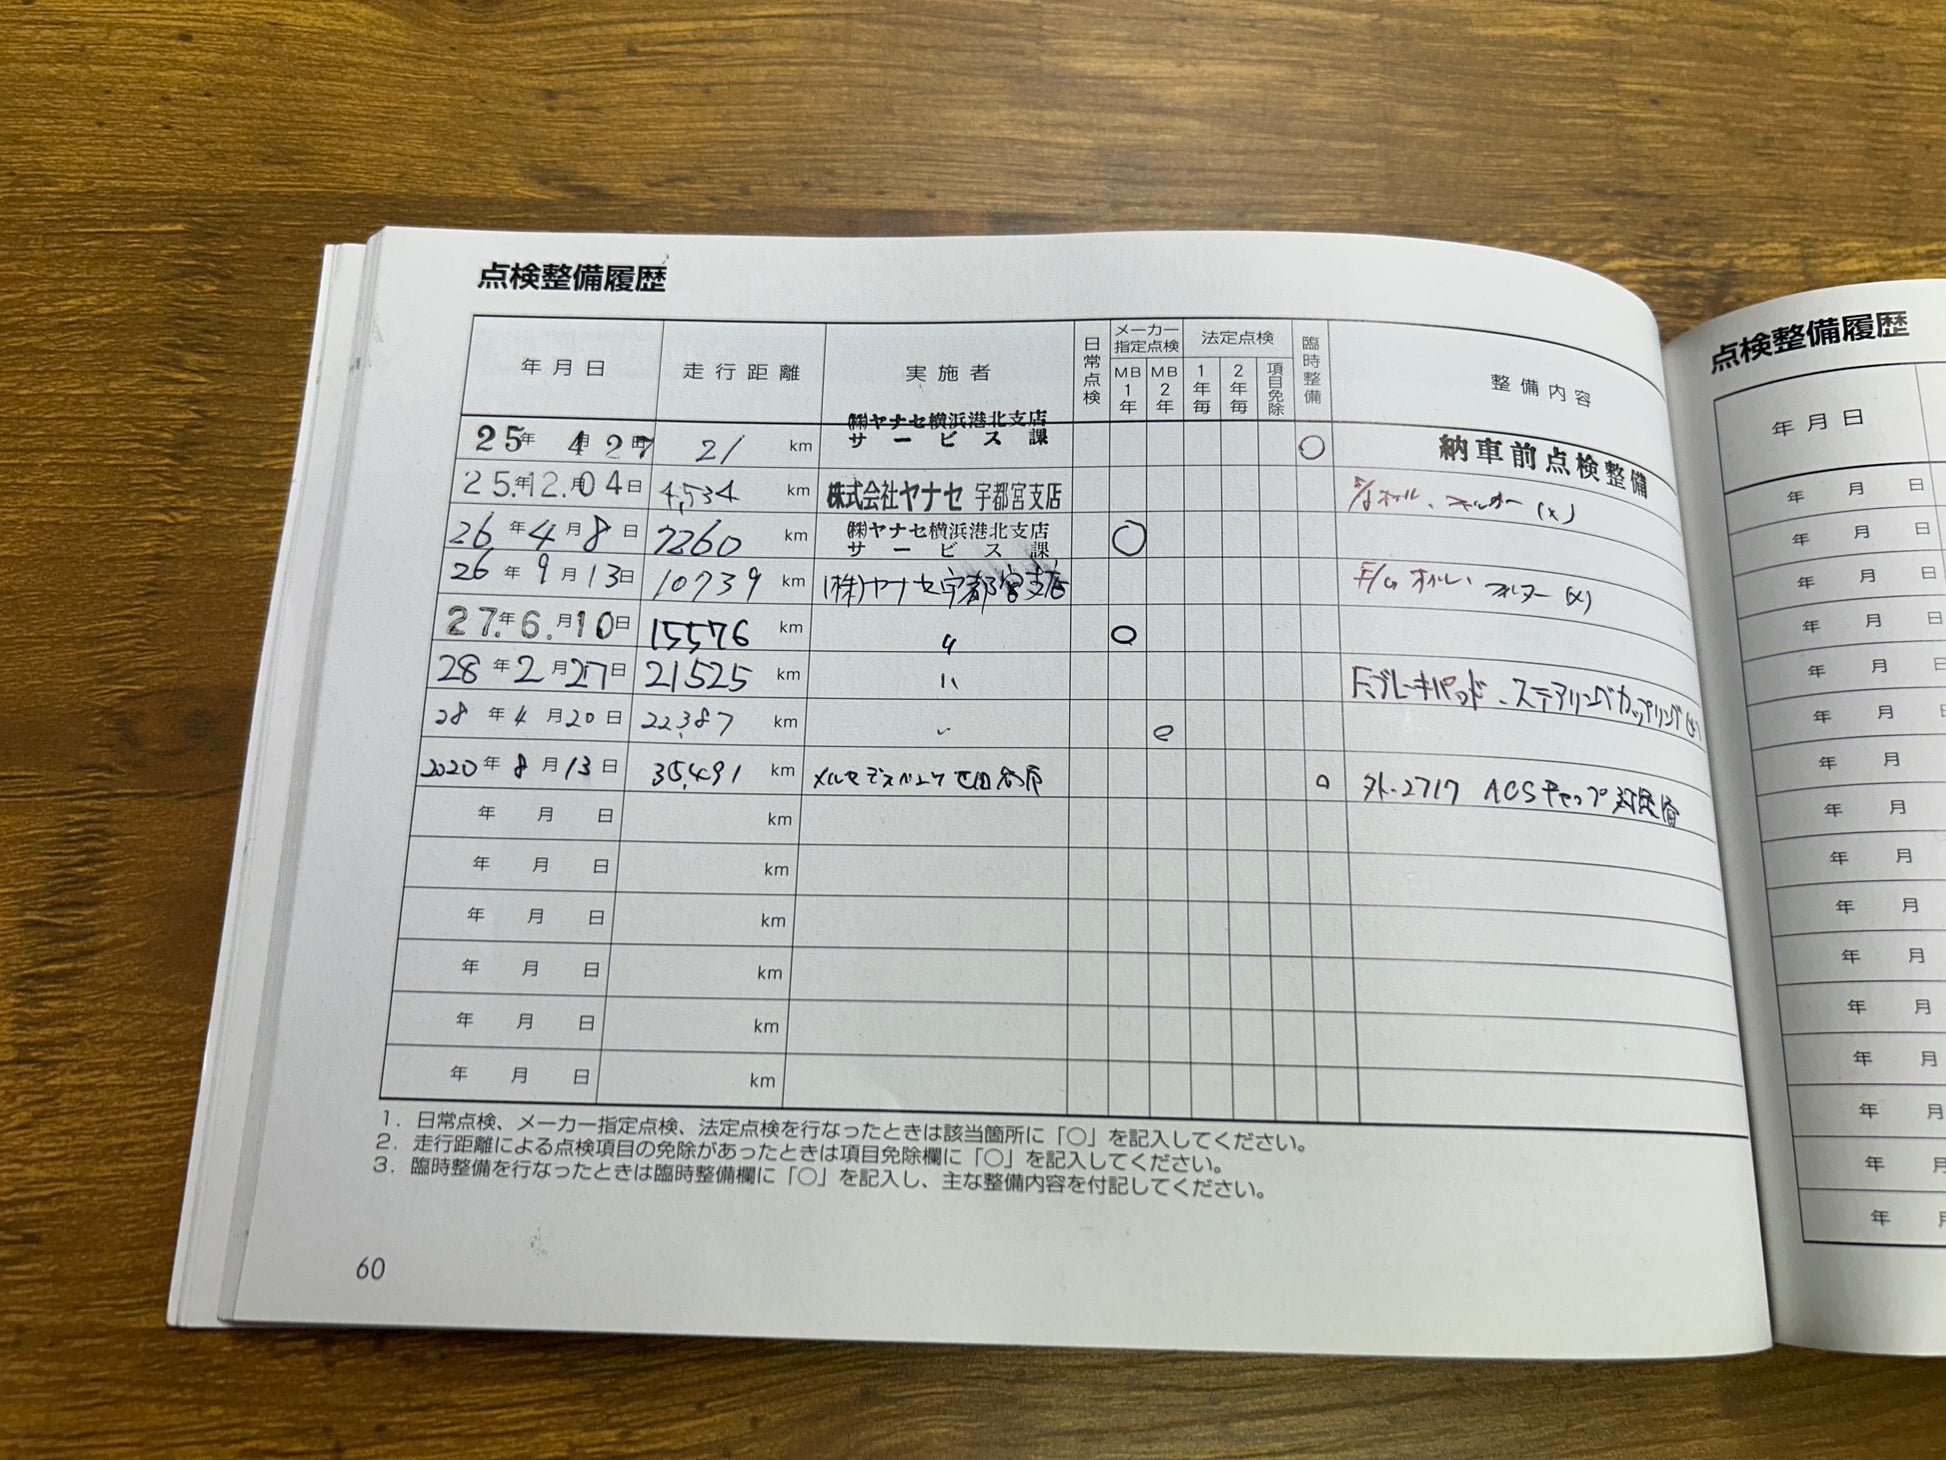 点検整備履歴
年月日 走行距離 実施者 日常点検 メーカー指定点検 MB1年 MB2年 法定点検 1年毎 2年毎 項目免除 臨時整備 整備内容
25年 4月27日 21 km ㈱ヤナセ横浜港北支店 サービス課 ○ 納車前点検整備
25.年12.月04日 4,534 km 株式会社ヤナセ 宇都宮支店 オイル、フィルター (x)
26年4月8日 7260 km ㈱ヤナセ横浜港北支店 サービス課 ○
26年9月13日 10739 km (株)ヤナセ宇都宮支店 オイル、フィルター (x)
27.年6.月10日 15576 km 〃 ○
28年2月27日 21525 km 〃 F.ブレーキパッド、ステアリングカップリング(x)
28年4月20日 22,387 km 〃 ○
2020年8月13日 35,491 km メルセデスベンツ ○ 外-2717 ACSチェップ対策
年 月 日 km
年 月 日 km
年 月 日 km
年 月 日 km
年 月 日 km
年 月 日 km
1. 日常点検、メーカー指定点検、法定点検を行なったときは該当箇所に「○」を記入してください。
2. 走行距離による点検項目の免除があったときは項目免除欄に「○」を記入してください。
3. 臨時整備を行なったときは臨時整備欄に「○」を記入し、主な整備内容を付記してください。
60
点検整備履歴
年月日
年 月 日
年 月 日
年 月 日
年 月 日
年 月 日
年 月 日
年 月
年 月
年 月
年 月
年 月
年 月
年 月
年 月
年 月
年 月
年 月